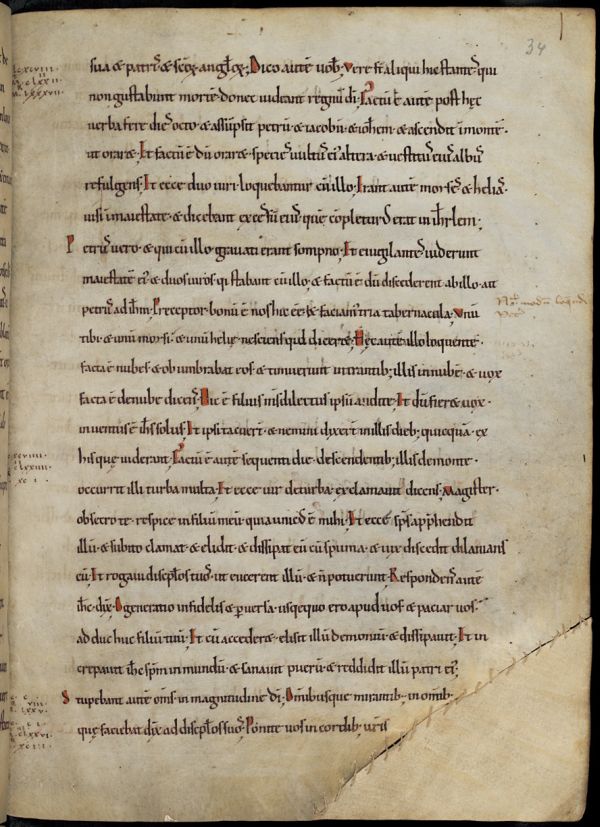 34
sua & patrıs & scōꝝ angłoꝝ; Dico autē uob̄. vere s̄t aliqui hic stantes qui
non gustabunt mortē donec uideant regnū dī; Factū ē autē post hęc
uerba fere dies octo & assūpsit petrū & iacobū & ioh̄em & ascendit ī montē.
ut oraret. Et factū ē dū oraret species uultus eı' altera & uestitus eius albus
refulgens; Et ecce duo uiri loquebantur cū illo; Erant autē morses & helias.
uisi ī maiestate & dicebant excessū eius quē cōpleturus erat in ihrłem;
Petrus uero & qui cū illo. grauati erant sompno; Et euigilantes uiderunt
maiestatē eı' & duos uiros qi stabant cū illo; & factū ē dū discederent ab illo. ait
petrus ad ihm; Preceptor. bonū ē nos hic eē. & faciam' tria tabernacula. vnū
tibi & unū morsi. & unū helię. nesciens quid diceret; Hęc autē illo loquente.
facta ē nubes & obumbrabat eos & timuerunt intrantib; illis in nubē. & uox
facta ē de nube dicens; Hic ē filius ms̄ dilectus ipsū audite; Et dū fieret uox.
inuentus ē ihs̄ solus; Et ipsi tacuer̄t. & nemini dixer̄t in illis dieb; quicquā. ex
his quę uiderant; Factū ē autē sequenti die. descendentib; illis de monte.
occurrit illi turba multa; Et ecce uir de turba. exclamauit dicens; Magister.
obsecro te. respice in filiū meū. quia unic' ē mihi; Et ecce sps̄ app̄hendit
illū. & subito clamat & elidit. & dissipat eū cū spuma. & uix discedit dilanians
eū; Et rogaui discipłos tuos. ut eicerent illū. & n̄ potuerunt; Respondens autē
ihc dix̄. O generatio infidelis & peruersa. usqequo ero apud uos & patiar uos;
adduc huc filiū tuū; Et cū accederet. elisit illū demoniū & dissipauit; Et in
crepauit ihc spm̄ inmundū. & sanauit puerū. & reddidit illū patri eı';
Stupebant autē oms̄ in magnitudine dī; Omnibusque mirantib; in omnib.
quę faciebat dix̄ ad discipłos suos; Ponite uos in cordib; ur̄is